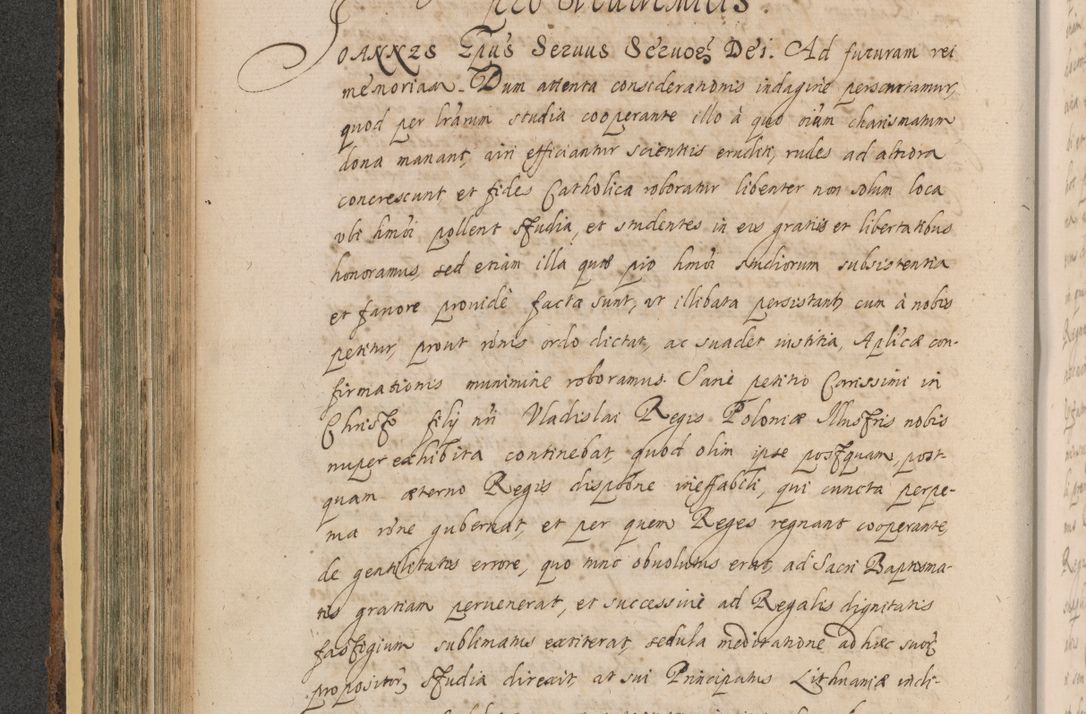 pro Academicis.
IOANNES Ep̄us Seruus Seruoꝝ Dei. Ad futuram rei
memoriam. Dum attenta considerationis indagine perscrutamur,
quod per lrarum studia cooperante illo à quo oium charismatum
dona manant, uiri efficiantur scientiis eruditi, rudes ad altiora
concrescunt et fides Catholica roboratur libenter non solum loca
vbi hmoi pollent studia, et studentes in eis gratiis et libertatibus
honoramus, sed etiam illa quæ pio hmoi studiorum subsistentia
et fauore prouidè facta sunt, ut illibata persistant, cum à nobis
petitur, prout rōnis ordo dictat, ac suadet iustitia, Aplicæ con-
firmationis munimine roboramus. Sanè petitio Carissimi in
Christo filij nri Vladislai Regis Poloniæ Illustris nobis
nuper exhibita continebat, quod olim ipse postquam, post-
quam æterno Regis dispōne ineffabili, qui cuncta perpe-
tua rōne gubernat, et per quem Reges regnant cooperante,
de gentilitatis errore, quo tunc obuolutus erat, ad Sacri Baptisma-
tis gratiam peruenerat, et successiuè ad Regalis dignitatis
fastigium sublimatus extiterat, sedula meditatione ad hæc suoꝝ
propositoꝝ studia direxit, ut sui Principatus Lithuaniæ incli-